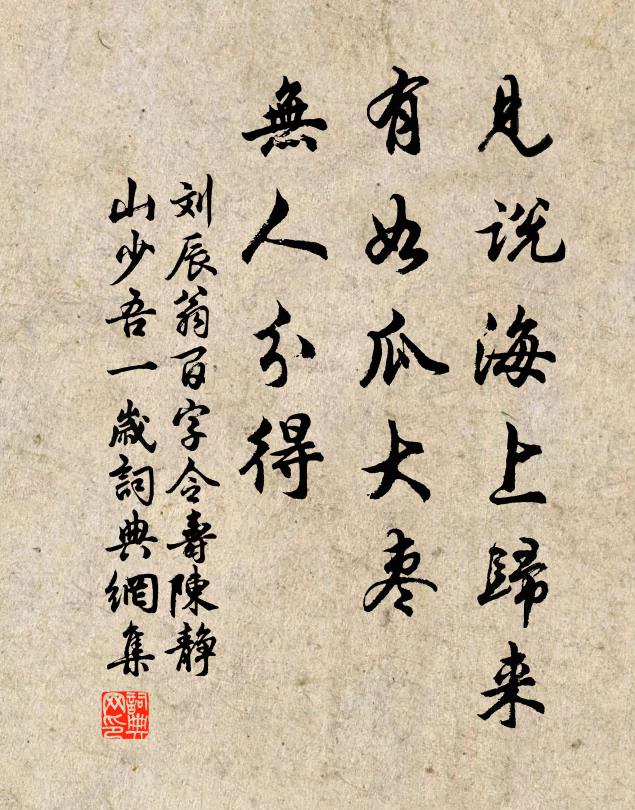 見說海上歸来
有如瓜大枣
無人分得
刘辰翁百字令壽陳静
山少吾一歳詞典網集
詞典网印